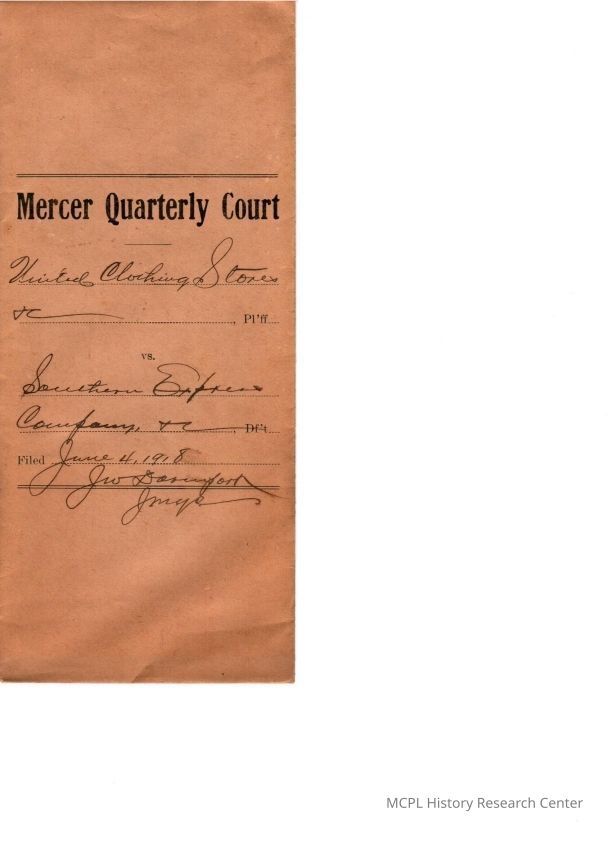 Mercer Quarterly Court
United Clothing Stores
&c, Pl'ff.
vs.
Southern Express
Company, &c, Df't.
Filed June 4, 1918
JW Davenport
MCPL History Research Center